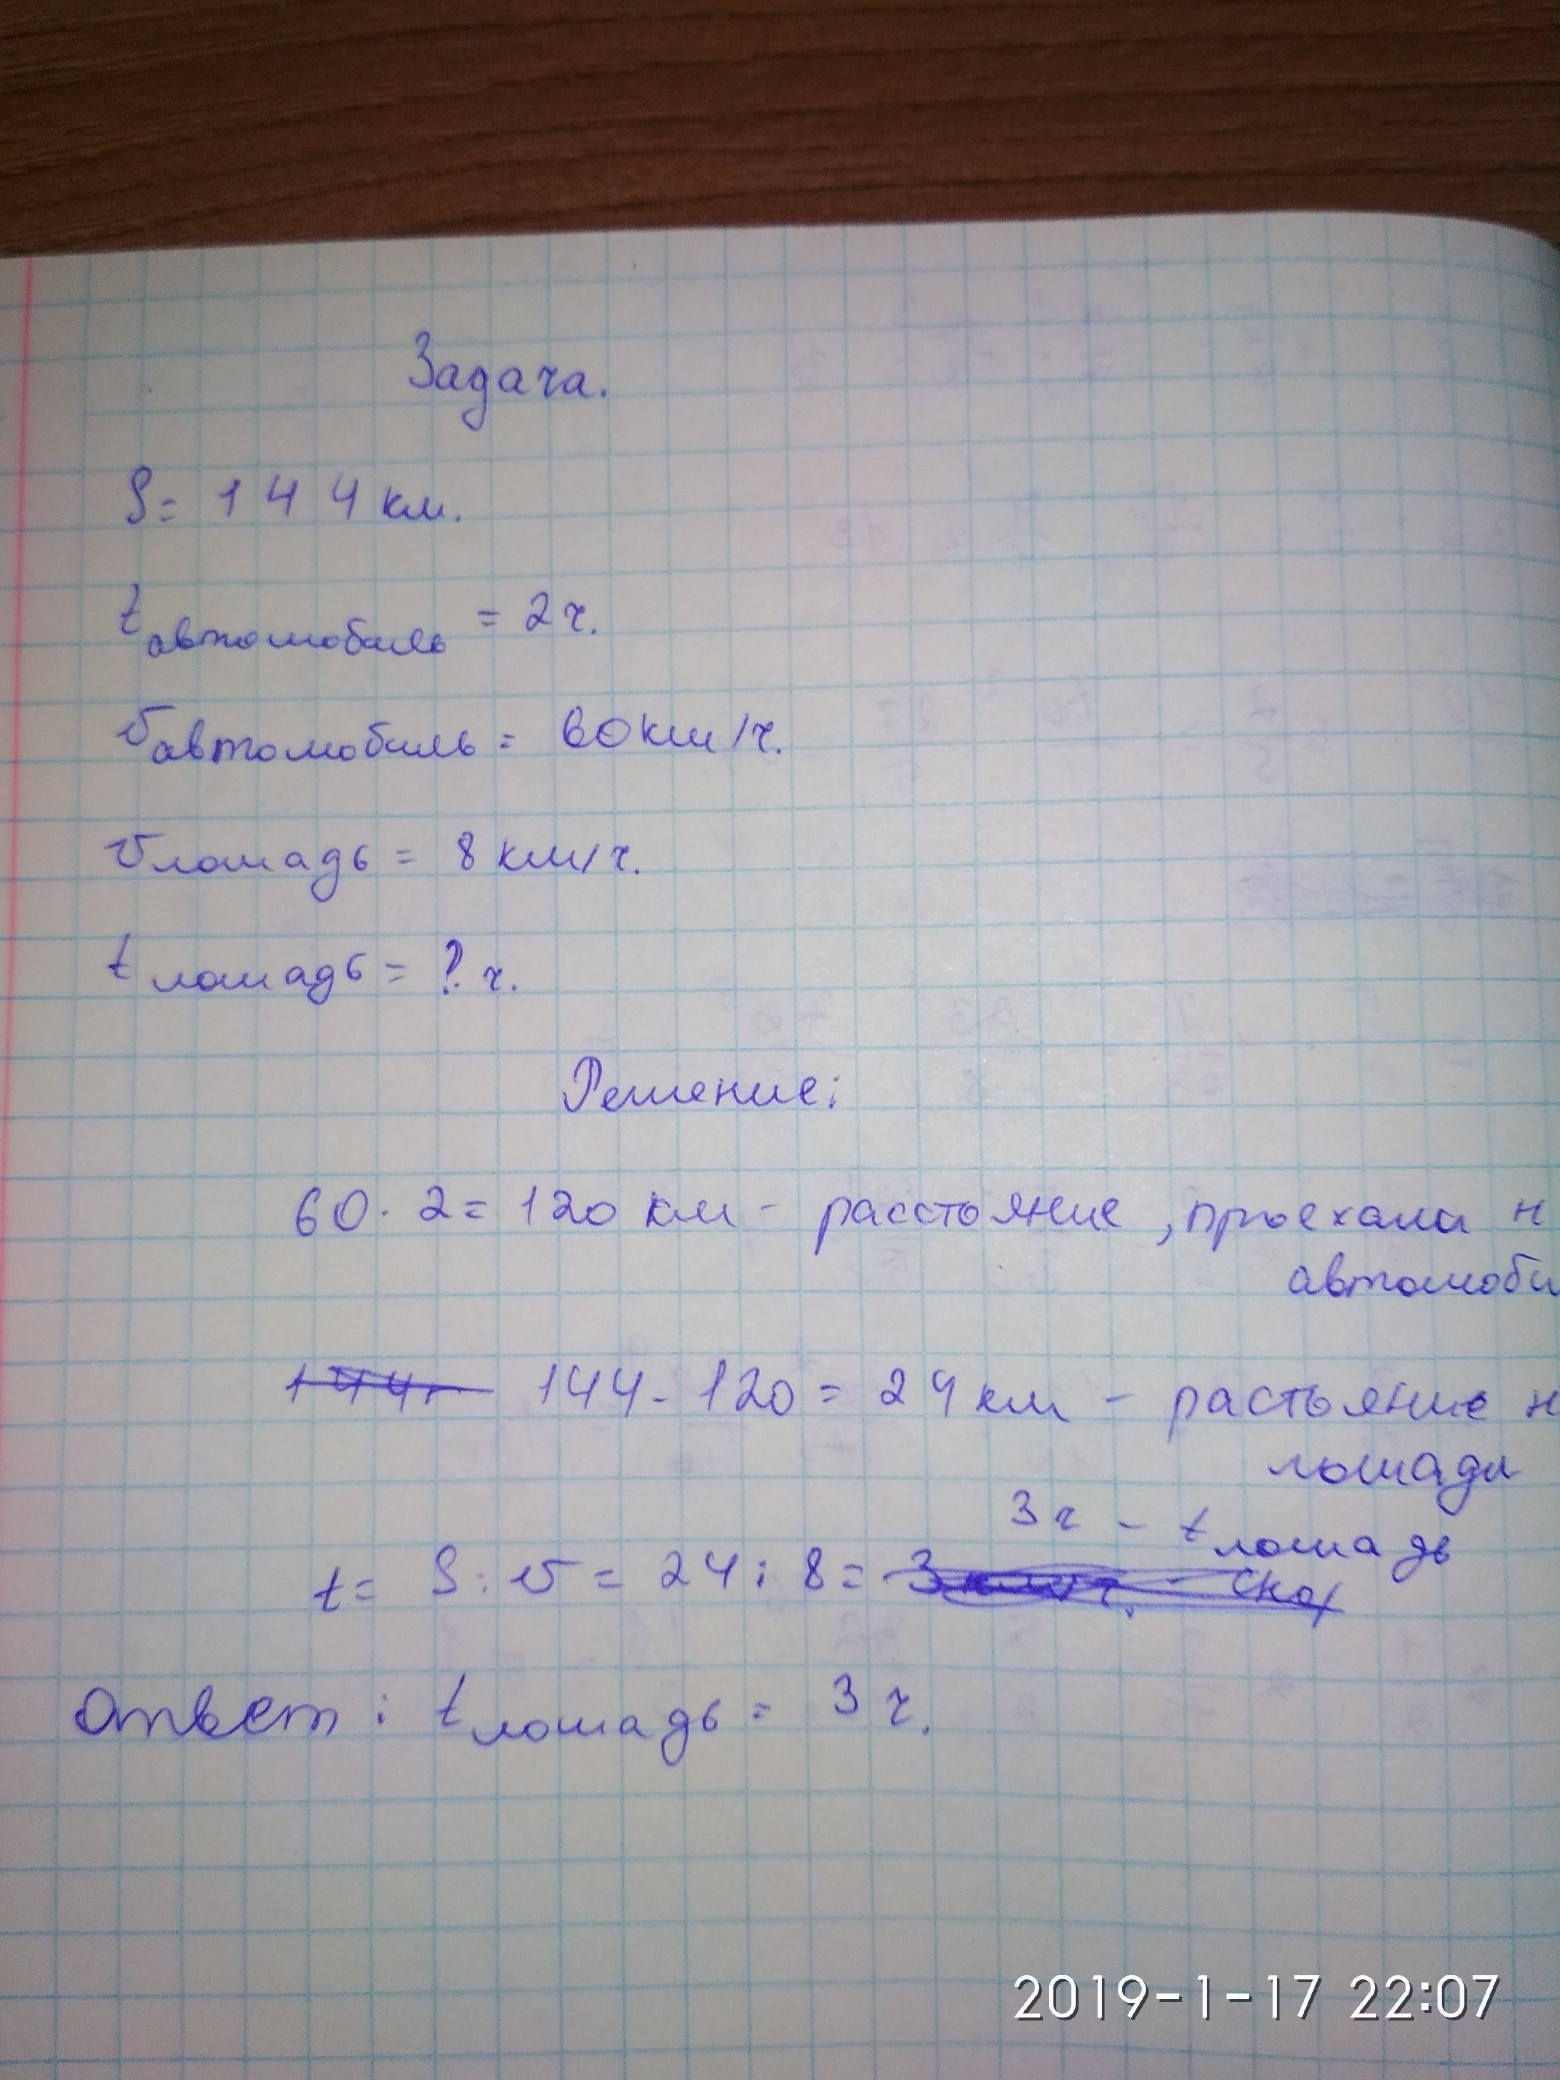 Задача.
S = 144 км.
t автомобиль = 2 ч.
v автомобиль = 60 км/ч.
v лошадь = 8 км/ч.
t лошадь = ? ч.
Решение:
60 · 2 = 120 км - расстояние, проехала н
автомоби
144 - 120 = 24 км - растояние н
лошади
3 ч - t лошадь
t = S : v = 24 : 8 =
Ответ: t лошадь = 3 ч.
2019-1-17 22:07